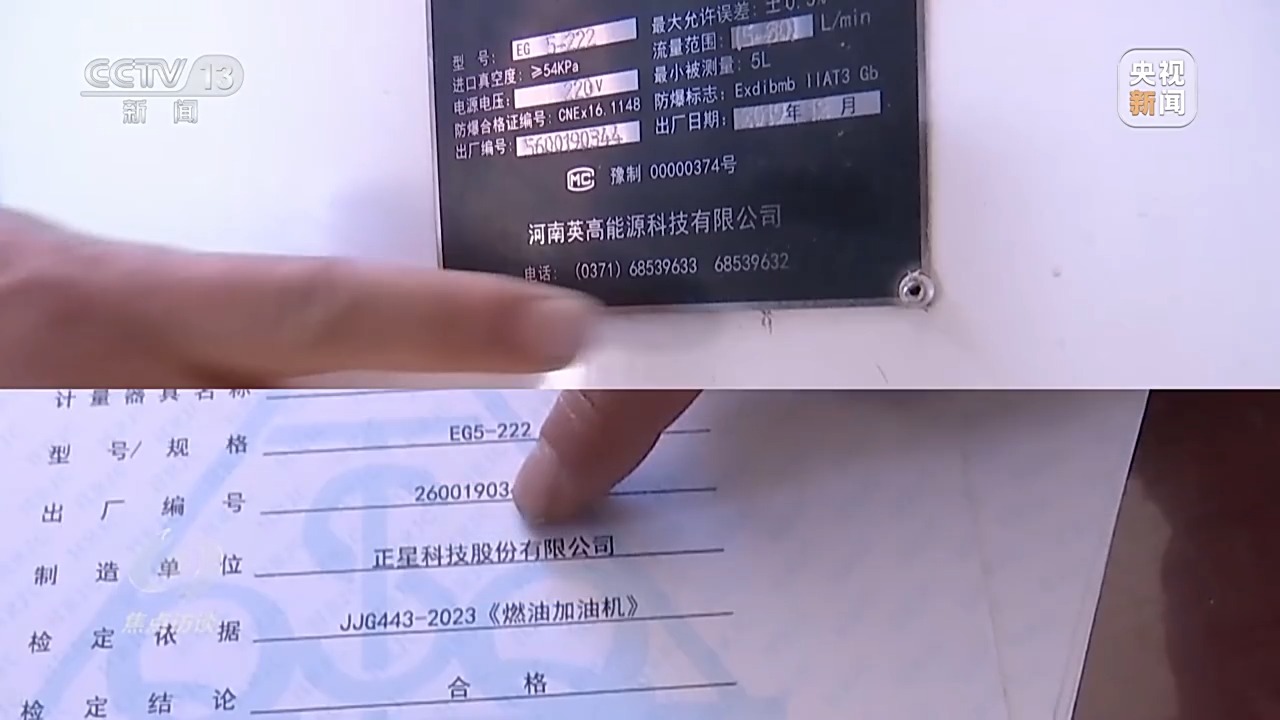 CCTV 13
新闻
央视
新闻
最大允许误差: ±0.3%
型 号: EG 5-222
流量范围: (5-80) L/min
进口真空度: ≥54KPa
最小被测量: 5L
电源电压: 220V
防爆标志: Exdibmb IIAT3 Gb
防爆合格证编号: CNEx16.1148
出厂日期: 年 月
出厂编号: 5600190344
MC 豫制 00000374号
河南英高能源科技有限公司
电话: (0371) 68539633 68539632
计量器具名称
型号/规格 EG5-222
出厂编号 26001903
制造单位 正星科技股份有限公司
检定依据 JJG443-2023《燃油加油机》
焦点访谈
检定结论 合格